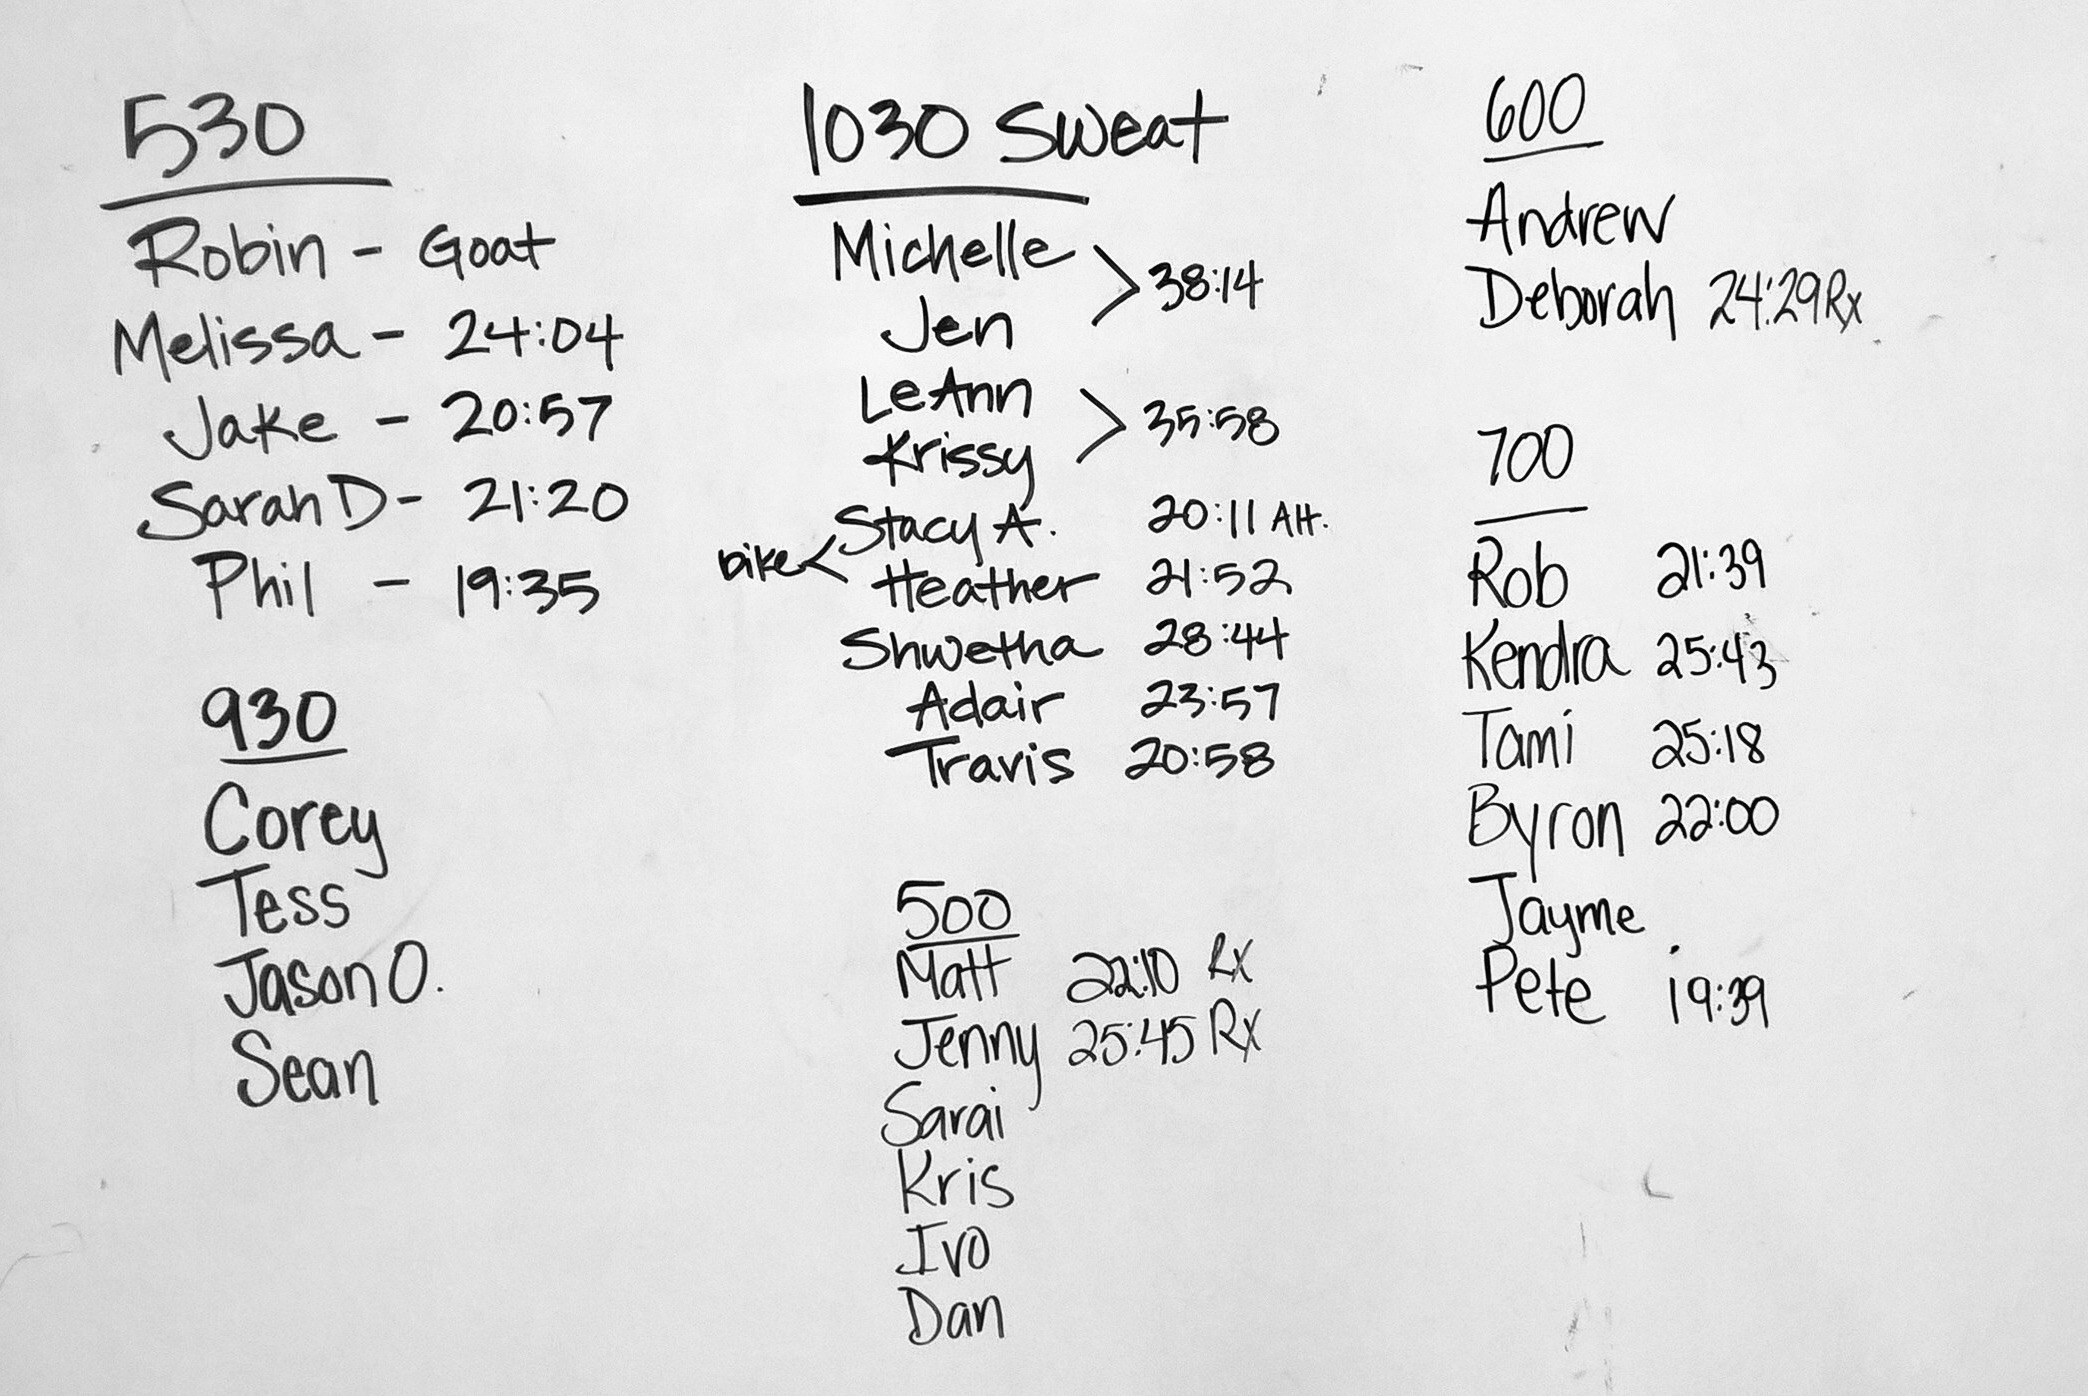 530
Robin - Goat
Melissa - 24:04
Jake - 20:57
Sarah D - 21:20
Phil - 19:35
930
Corey
Tess
Jason O.
Sean
1030 Sweat
Michelle
Jen
> 38:14
LeAnn
Krissy
> 35:58
bike <
Stacy A. 20:11 Alt.
Heather 21:52
Shwetha 28:44
Adair 23:57
Travis 20:58
500
Matt 22:10 Rx
Jenny 25:45 Rx
Sarai
Kris
Ivo
Dan
600
Andrew
Deborah 24:29 Rx
700
Rob 21:39
Kendra 25:43
Tami 25:18
Byron 22:00
Jayme
Pete 19:39